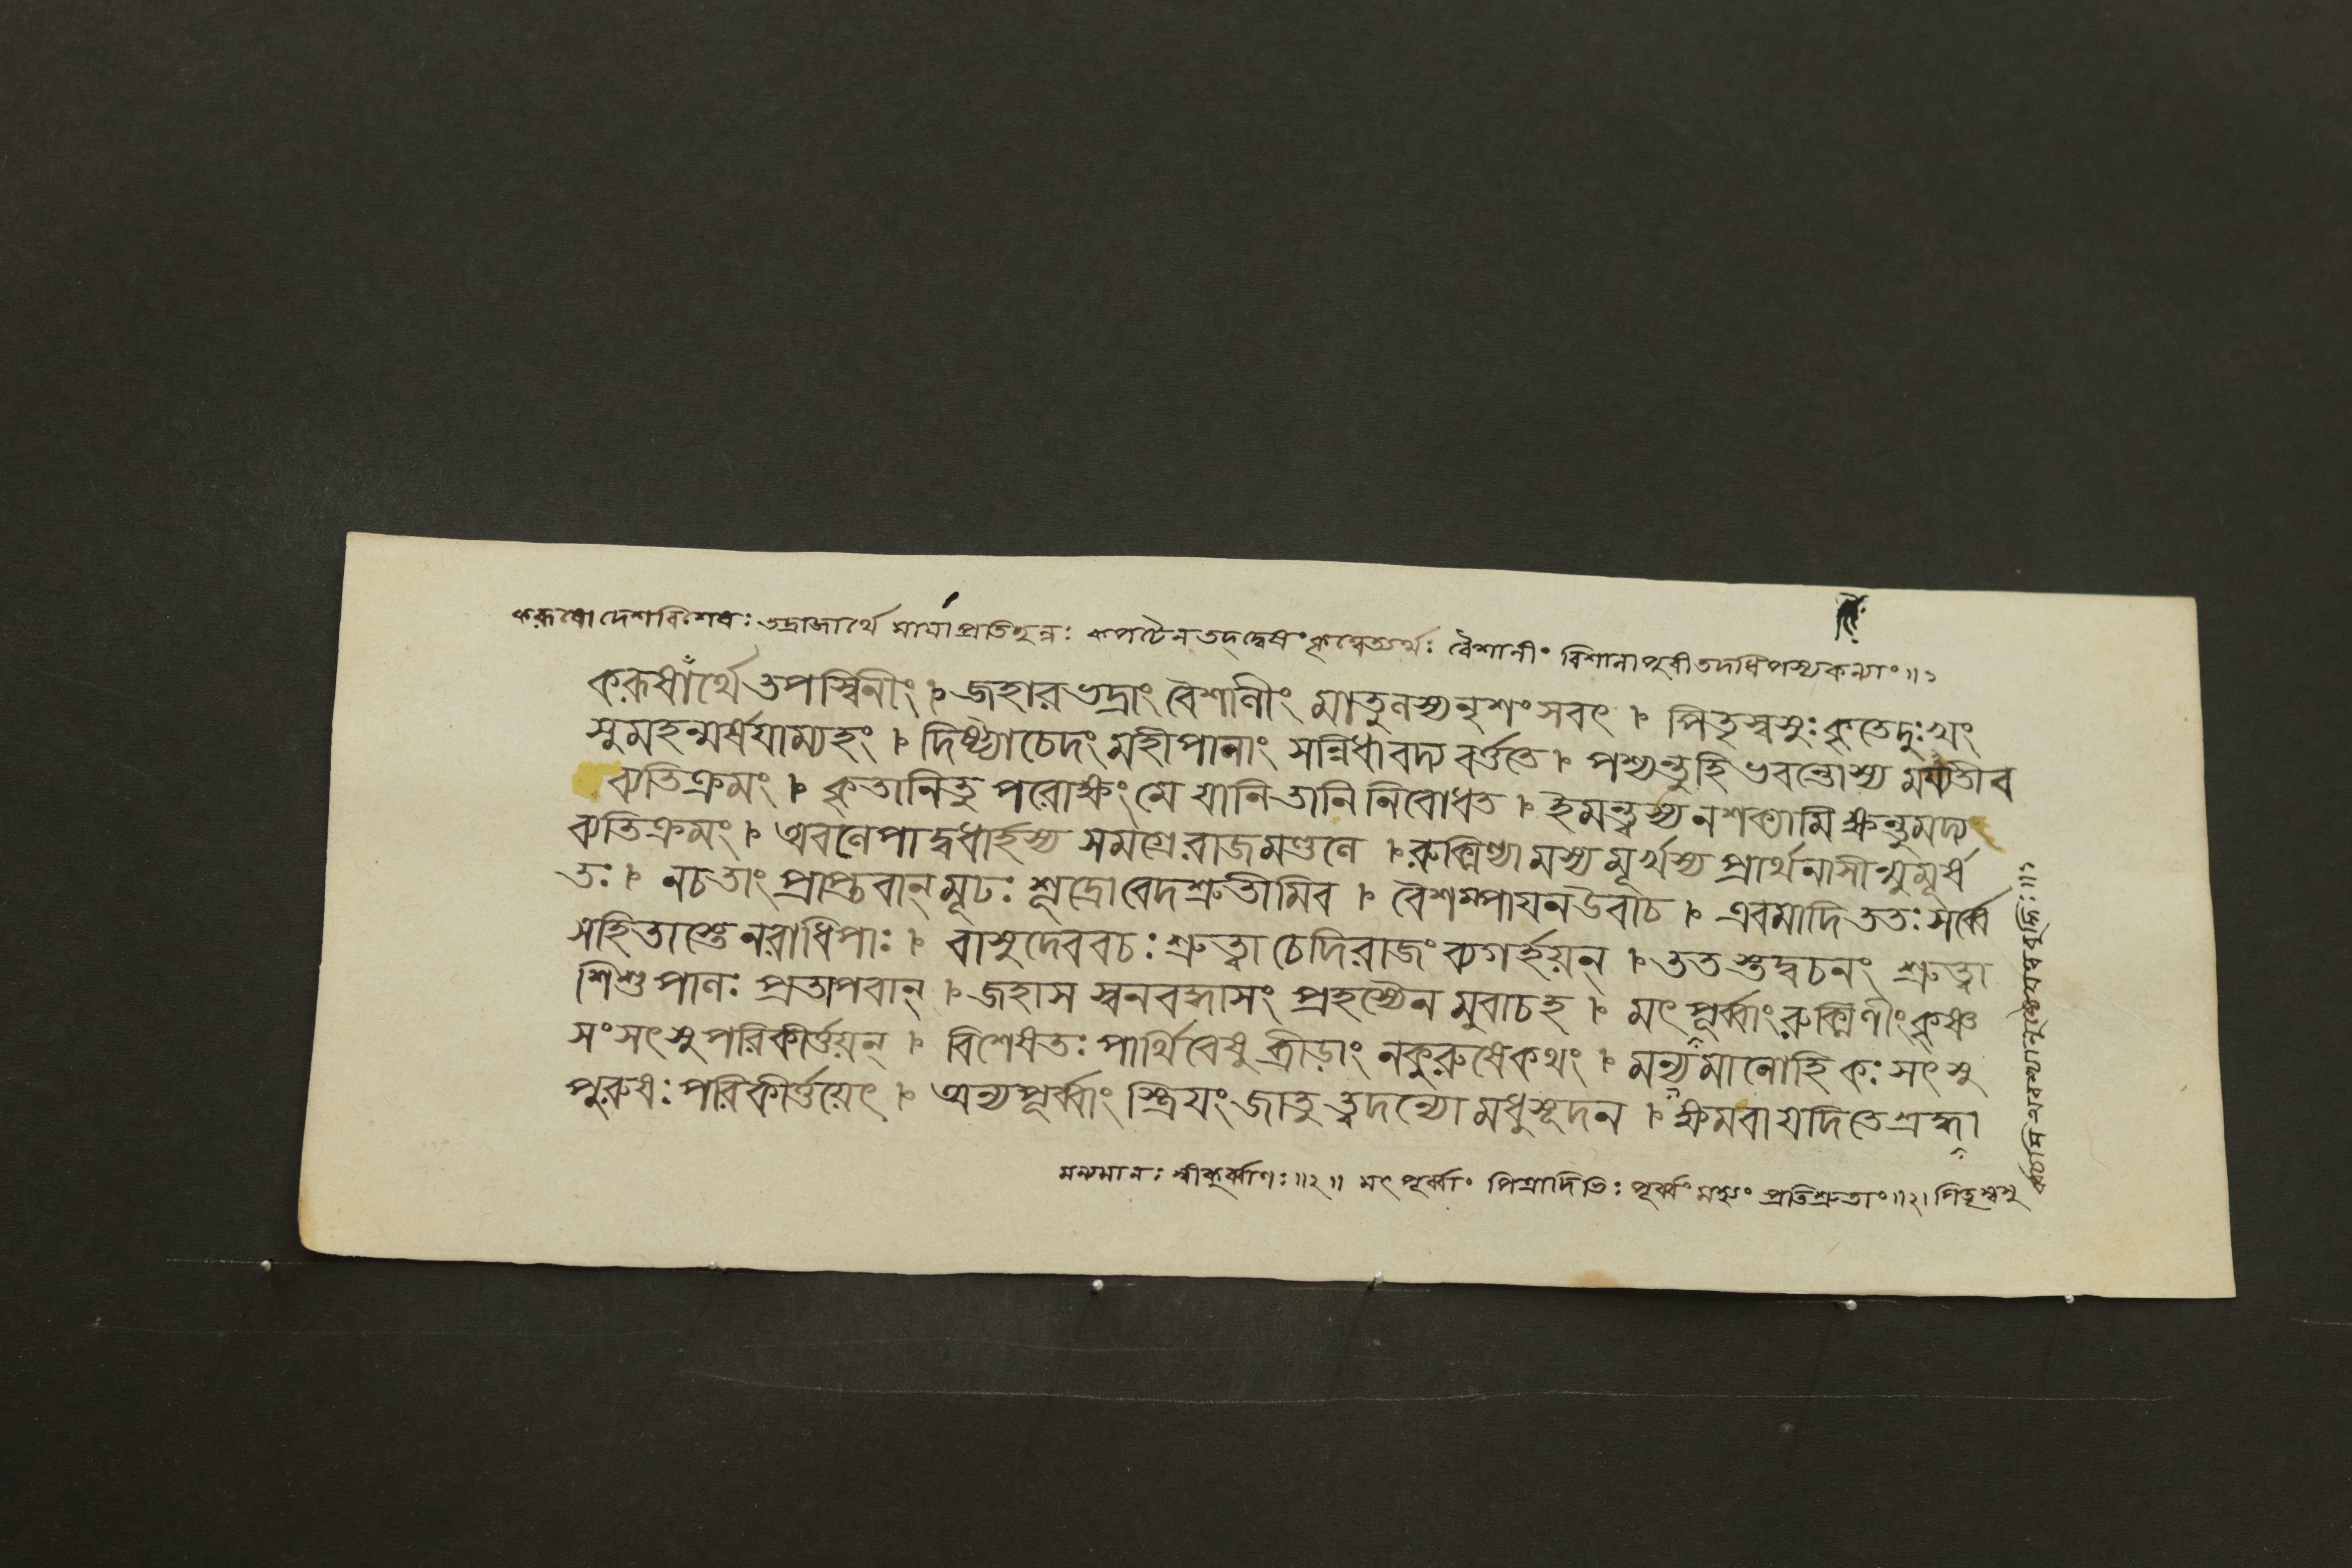 করূষো দেশবিশেষঃ তদ্রাজার্থে মায়াপ্রতিছন্নঃ কপটেন তদ্দ্বেষং কৃত্বেত্যর্থঃ বৈশালীং বিশালাপুরীতদধিপস্যকন্যাং॥১
করূষার্থে তপস্বিনীং । জহার ভদ্রাং বৈশালীং মাতুলস্য নৃশংসবৎ । পিতৃস্বসুঃ কৃতেদুঃখং
সুমহন্মর্ষয়াম্যহং । দিষ্ট্যাচেদং মহীপালাং সন্নিধাবদ্য বর্ত্ততে । পশ্যন্তুহি ভবন্তোস্য ময্যতীব
ব্যতিক্রমং । কৃতানিতু পরোক্ষং মে যানি তানি নিবোধত । ইমন্ত্বস্য নশক্যামি ক্ষন্তুমদ্য
ব্যতিক্রমং । অবলেপাদ্বধার্হস্য সমগ্রে রাজমণ্ডলে । রুক্মিণ্যামস্য মূর্খস্য প্রার্থনাসীন্মুমূর্ষ
তঃ । নচতাং প্রাপ্তবান্ মূঢঃ শূদ্রোবেদশ্রুতীমিব । বৈশম্পায়নউবাচ । এবমাদি ততঃ সর্ব্বে
সহিতাস্তে নরাধিপাঃ । বাসুদেববচঃ শ্রুত্বা চেদিরাজং ব্যগর্হয়ন্ । ততস্তদ্বচনং শ্রুত্বা
শিশুপালঃ প্রতাপবান্ । জহাস স্বনবদ্ধাসং প্রহস্যৈনমুবাচহ । মৎপূর্ব্বাং রুক্মিণীং কৃষ্ণ
সংসৎসু পরিকীর্ত্তয়ন্ । বিশেষতঃ পার্থিবেষু ব্রীড়াং নকুরুষেকথং । মন্যমানোহি কঃ সৎসু
পুরুষঃ পরিকীর্ত্তয়েৎ । অন্যপূর্ব্বাং স্ত্রিয়ং জাতু ত্বদন্যো মধুসূদন । ক্ষমবা যদিতে শ্রদ্ধা
মন্যমানঃ স্বীকুর্ব্বাণঃ॥২॥ মৎপূর্ব্বাং পিত্রাদিভিঃ পূর্ব্বং মহ্যং প্রতিশ্রুতাং॥২। পিতৃস্বসু